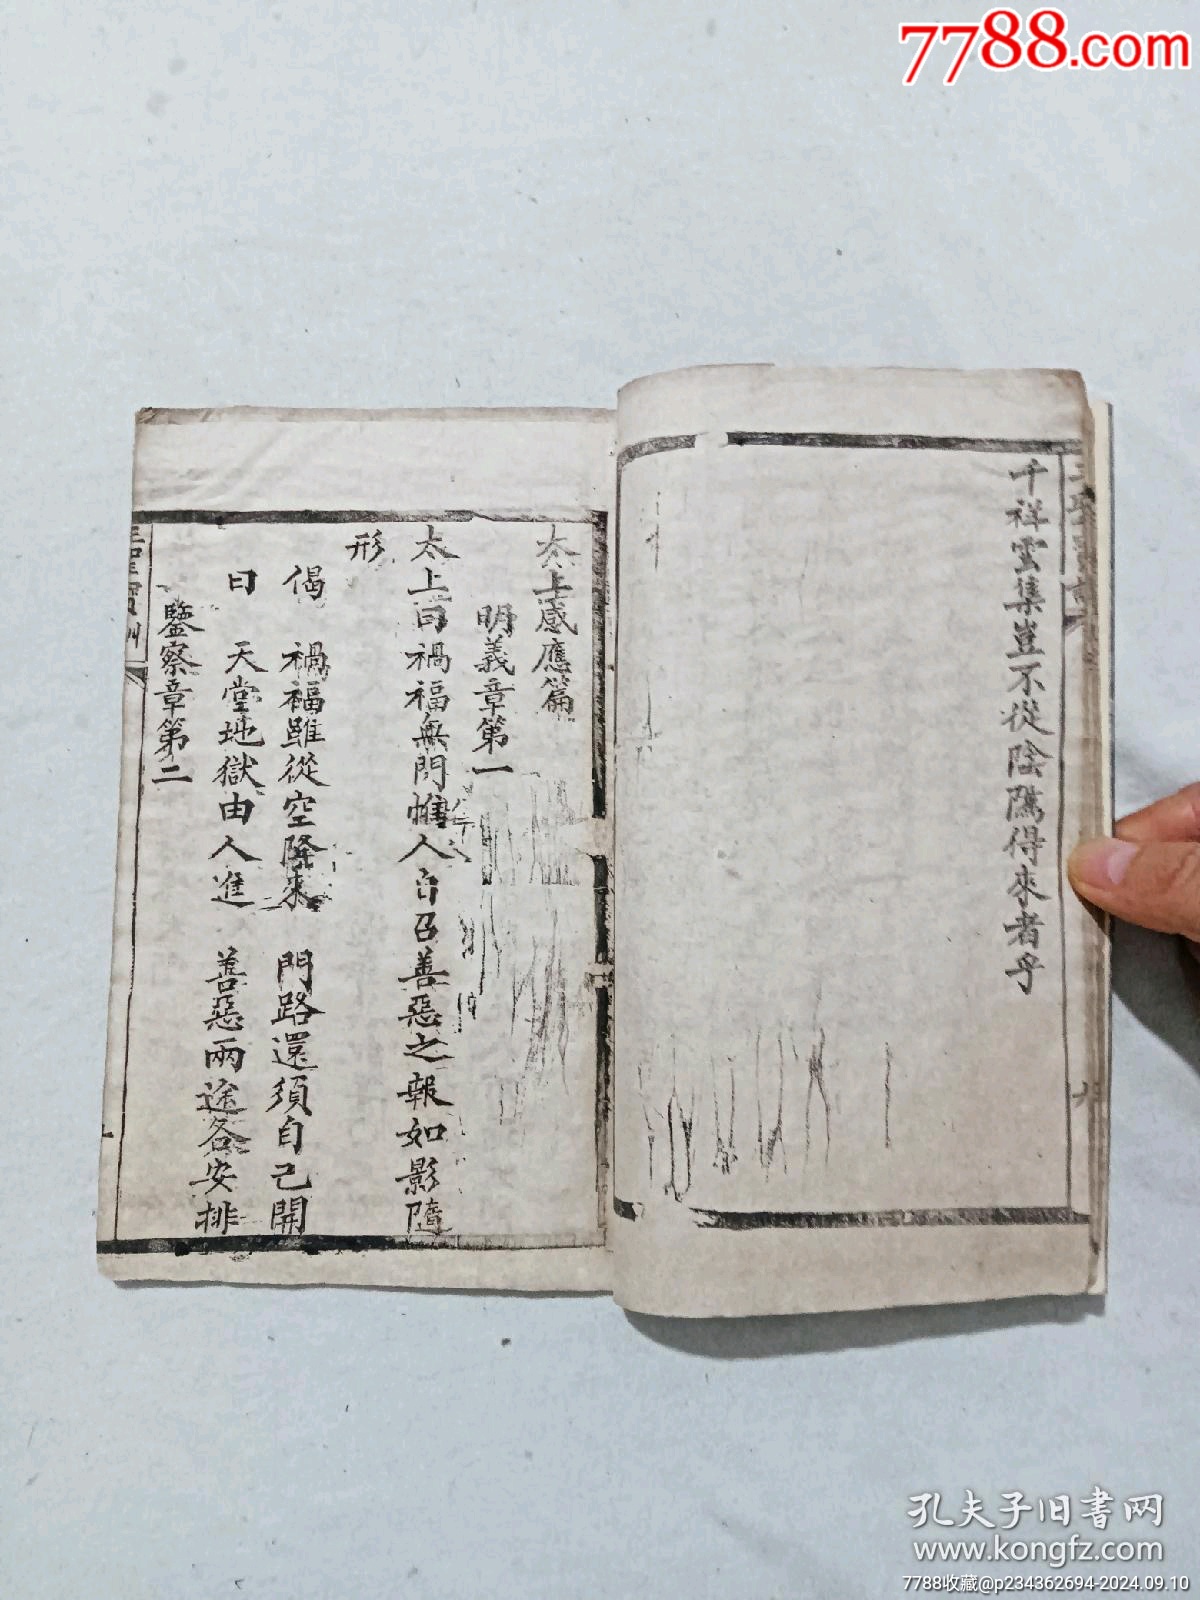 7788.com
千祥雲集豈不從陰隲得來者乎
太上感應篇
明義章第一
太上曰禍福無門惟人自召善惡之報如影隨
形
偈 禍福雖從空降來 門路還須自己開
曰 天堂地獄由人進 善惡兩途各安排
鑒察章第二
孔夫子旧书网
www.kongfz.com
7788收藏@p234362694-2024.09.10